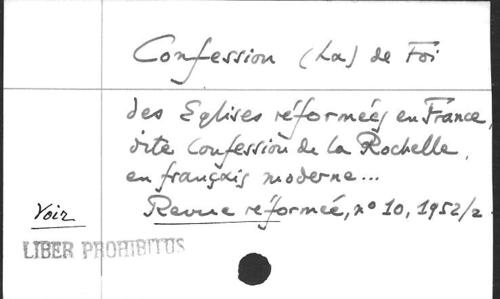 Confession (La) de Foi
des Eglises réformées en France,
dite Confession de la Rochelle,
en français moderne...
Voir Revue réformée, nº 10, 1952/2.
LIBER PROHIBITUS